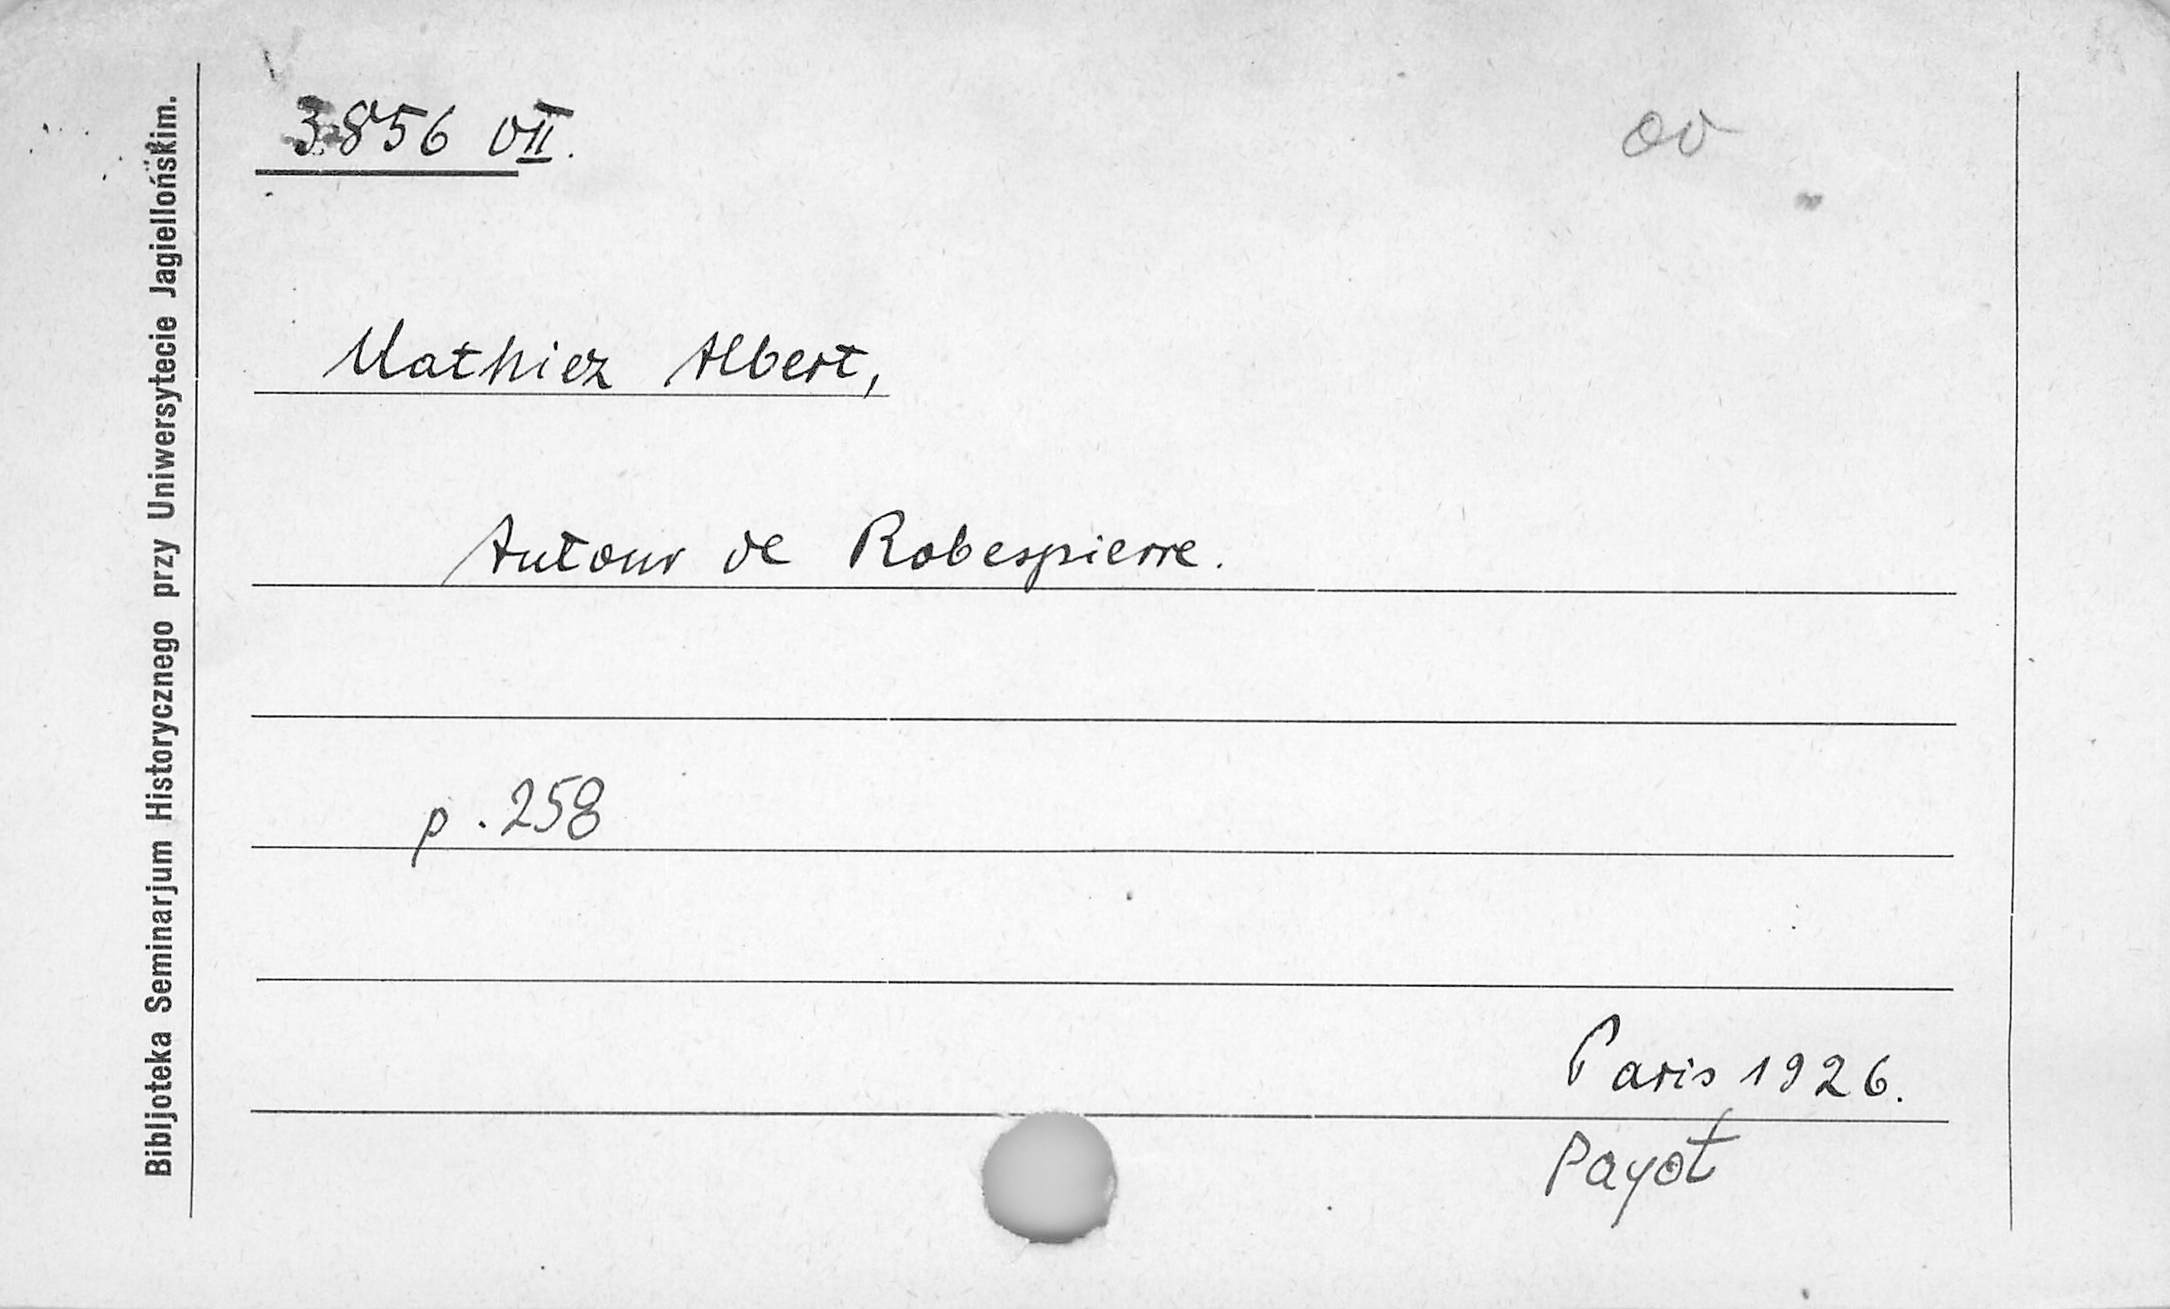 Bibljoteka Seminarjum Historycznego przy Uniwersytecie Jagiellońskim.
3856 VII.
Mathiez Albert,
Autour de Robespierre.
p. 258
Paris 1926.
Payot